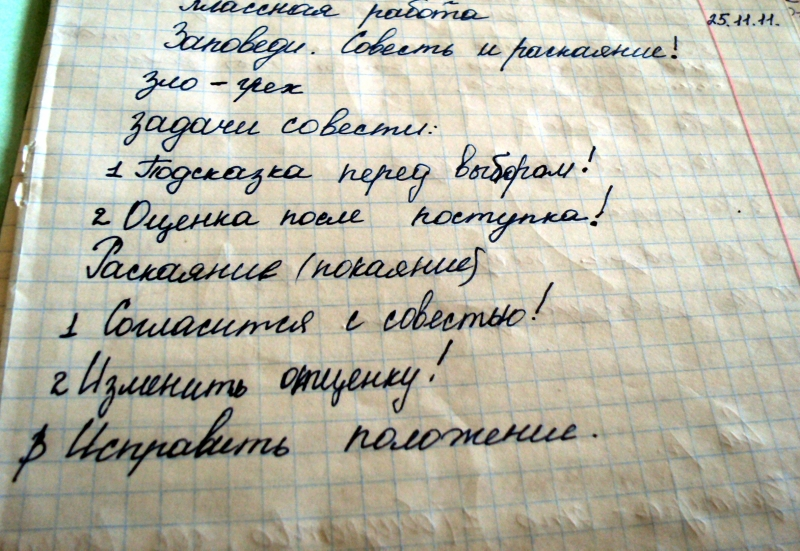 классная работа
25.11.11.
Заповеди. Совесть и раскаяние!
зло - грех
задачи совести:
1 Подсказка перед выбором!
2 Оценка после поступка!
Раскаяние (покаяние)
1 Согласится с совестью!
2 Изменить оценку!
3 Исправить положение.